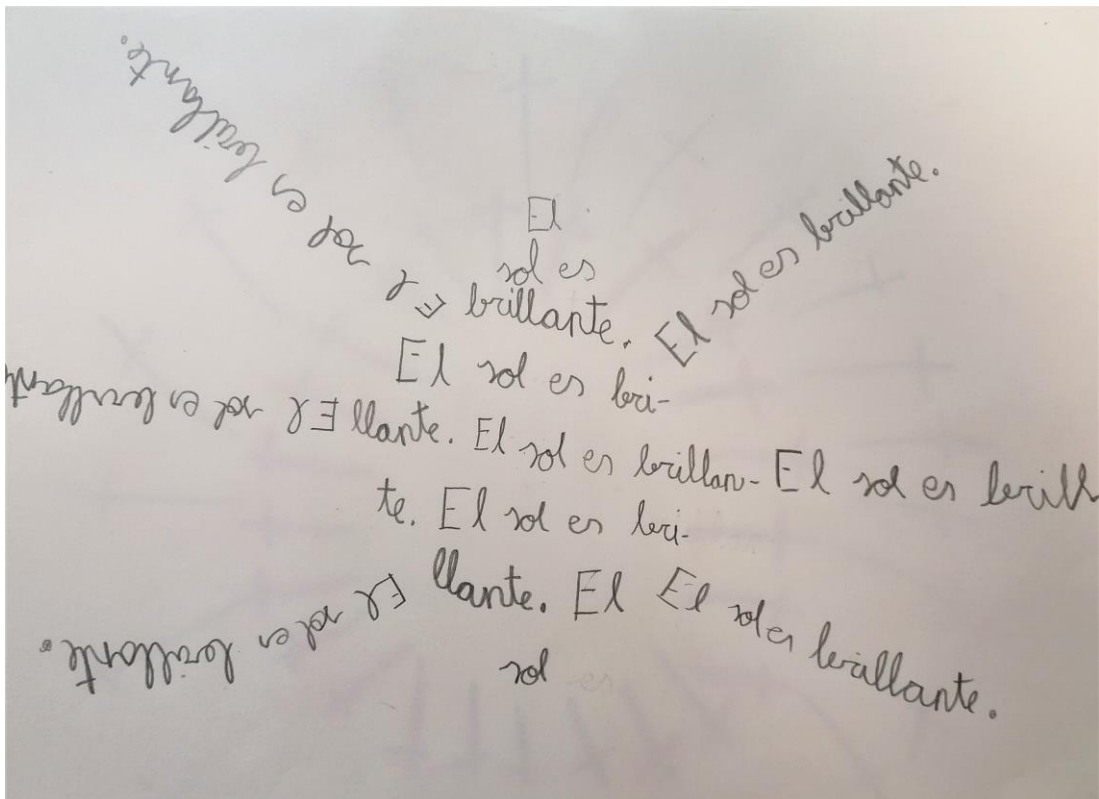 El
sol es
brillante.
El sol es bri-
llante. El sol es brillan-
te. El sol es bri-
llante. El
sol es
El sol es brillante.
El sol es brillante.
El sol es brillant
El sol es brill
El sol es brillante.
El sol es brillante.